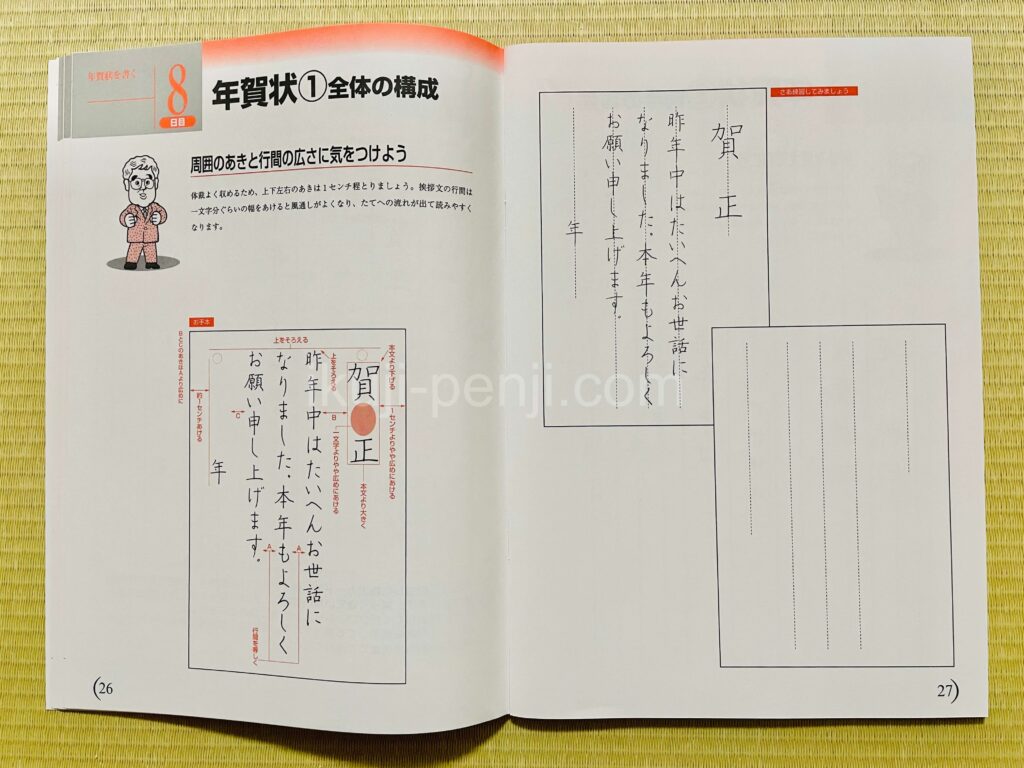 年賀状を書く
8
日目
年賀状①全体の構成
周囲のあきと行間の広さに気をつけよう
体裁よく収めるため、上下左右のあきは1センチ程とりましょう。挨拶文の行間は
一文字分ぐらいの幅をあけると風通しがよくなり、たてへの流れが出て読みやすく
なります。
お手本
上をそろえる
本文より下げる
1センチよりやや広めにあける
賀正
本文より大きく
上をそろえる
B
一文字よりやや広めにあける
昨年中はたいへんお世話に
なりました。本年もよろしく
お願い申し上げます。
年
A
A
行間を等しく
C
約1センチあける
BとCのあきはAより広めに
26
さあ練習してみましょう
賀正
昨年中はたいへんお世話に
なりました。本年もよろしく
お願い申し上げます。
年
27
ikuji-penji.com